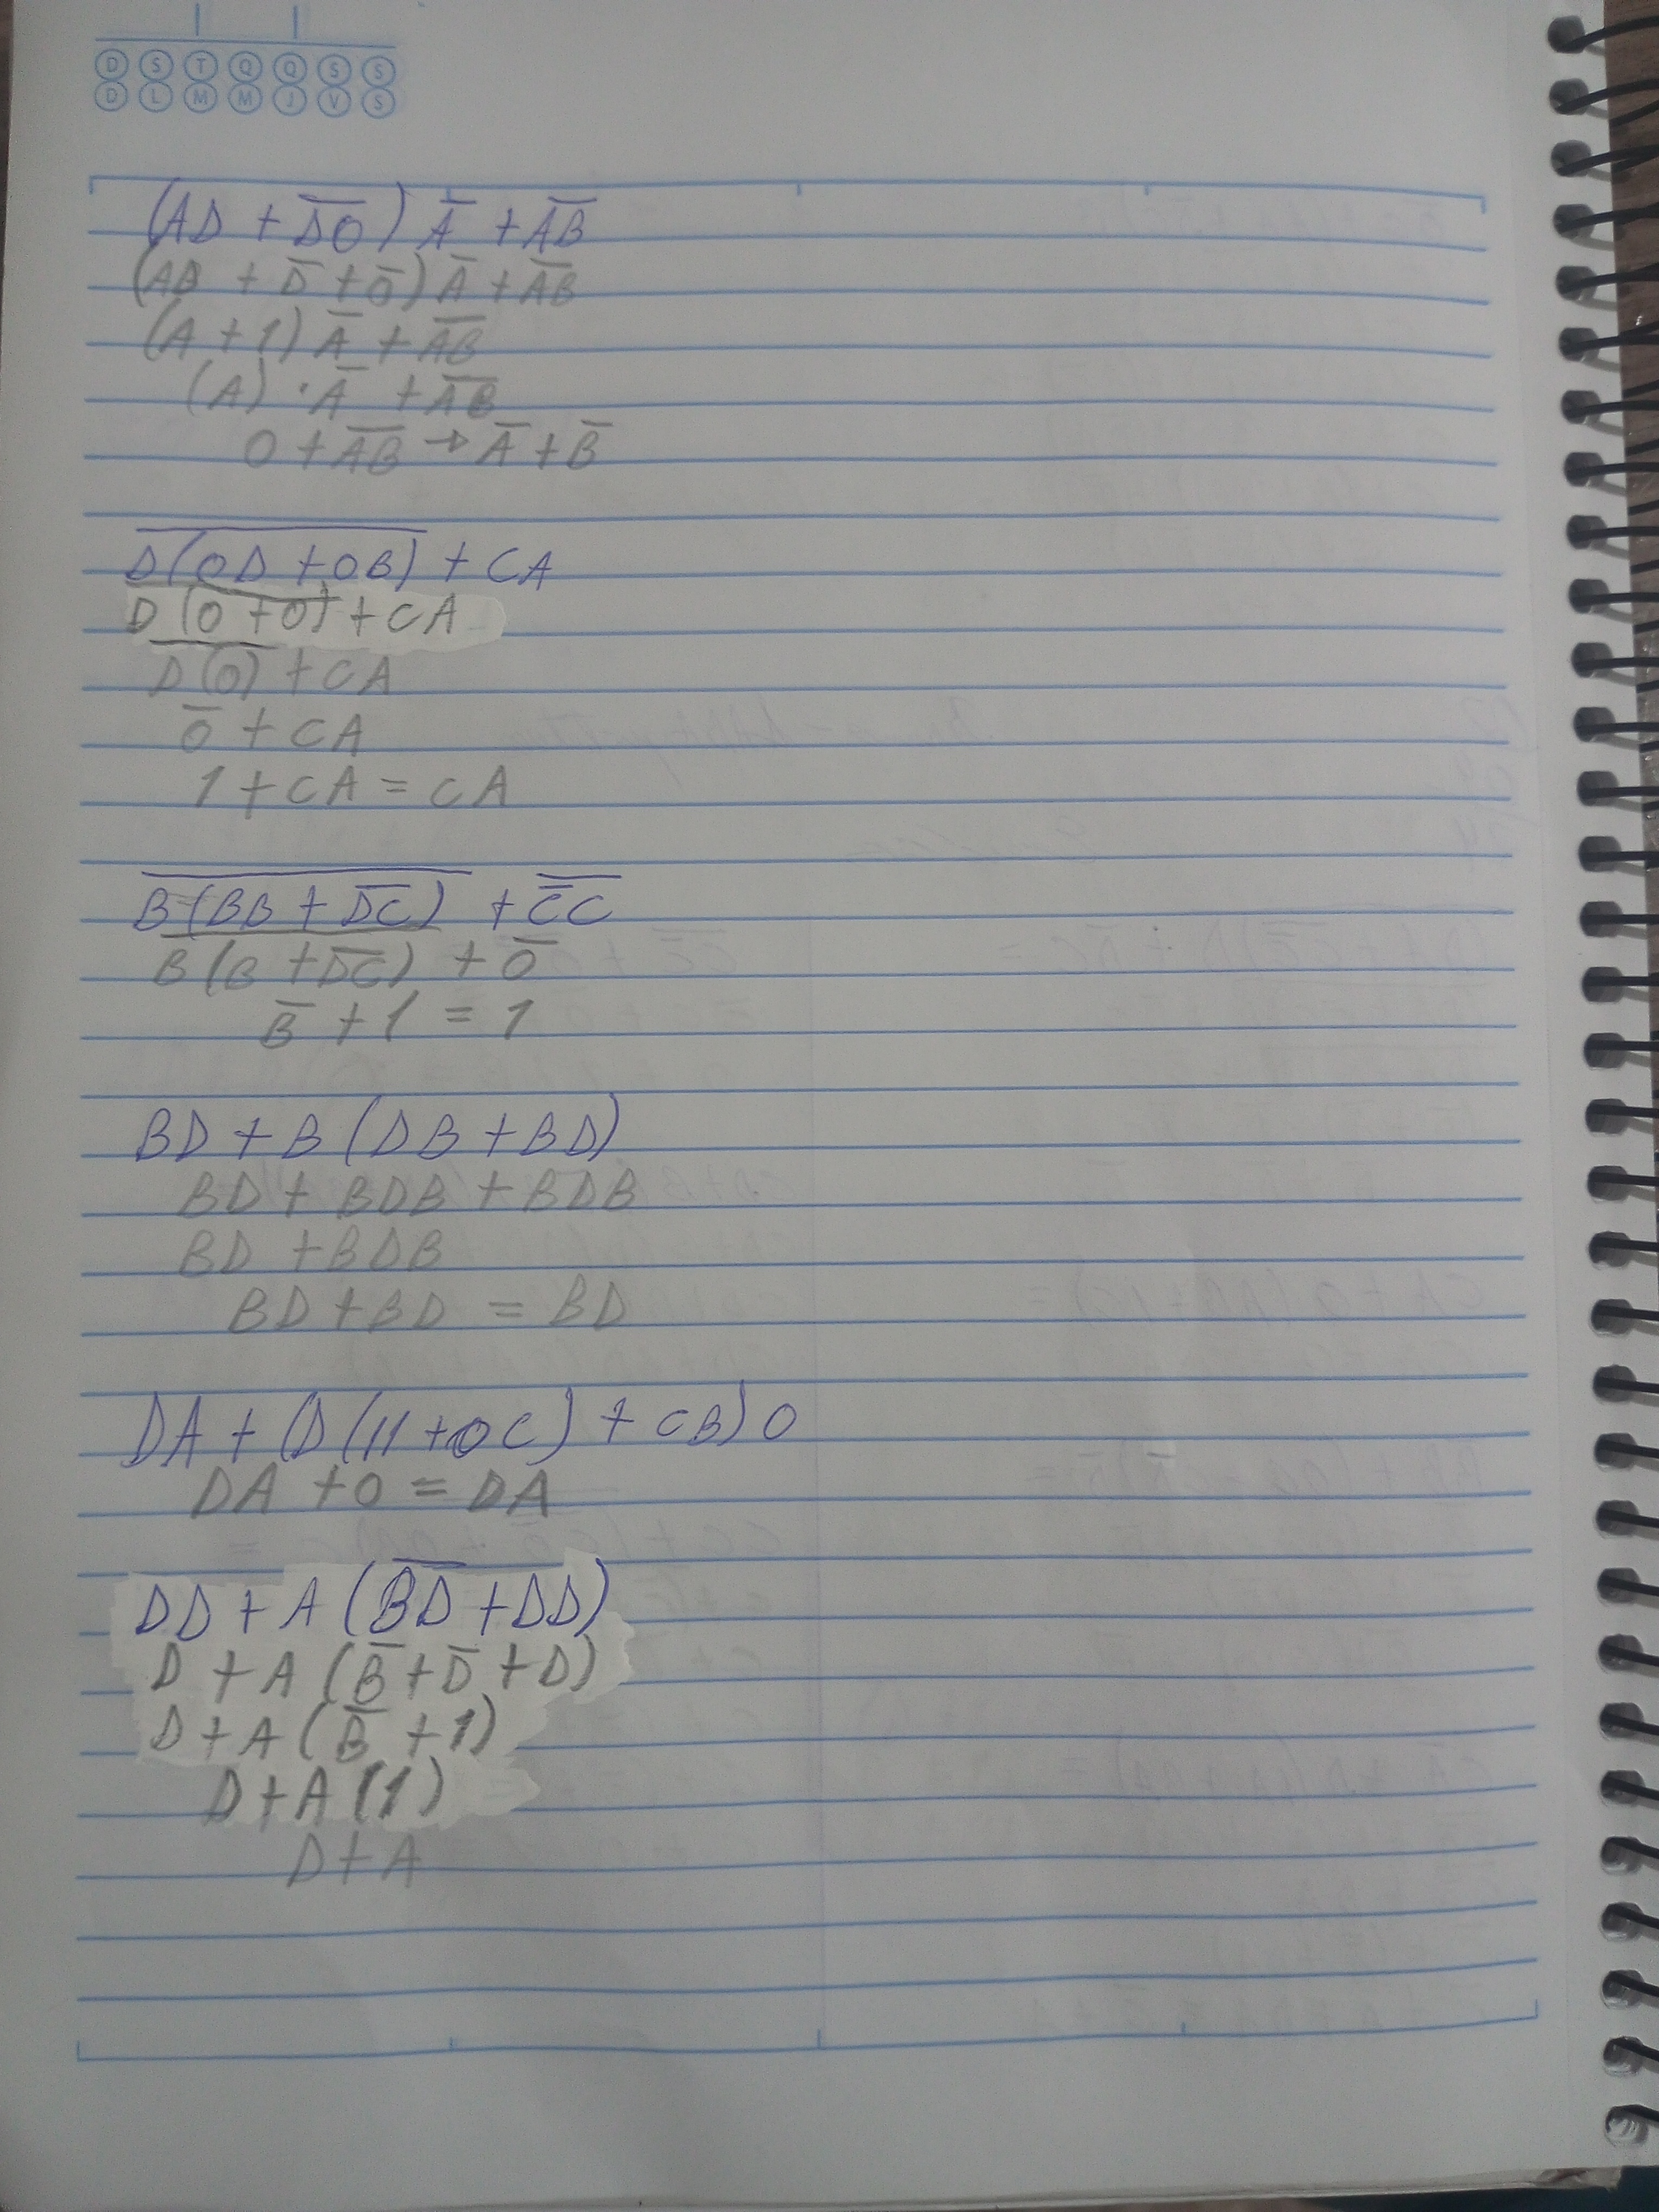 D S T Q Q S S
D L M M J V S
(AD + \overline{D0}) \overline{A} + \overline{AB}
(AD + \overline{D} + \overline{0}) \overline{A} + \overline{AB}
(A + 1) \overline{A} + \overline{AB}
(A) · \overline{A} + \overline{AB}
0 + \overline{AB} → \overline{A} + \overline{B}
\overline{D(0D + 0B)} + CA
\overline{D(0 + 0)} + CA
\overline{D(0)} + CA
\overline{0} + CA
1 + CA = CA
\overline{B(BB + \overline{DC})} + \overline{\overline{C}C}
\overline{B(B + \overline{DC})} + \overline{0}
\overline{B} + 1 = 1
BD + B (DB + BD)
BD + BDB + BDB
BD + BDB
BD + BD = BD
DA + (D(11 + 0C) + CB) 0
DA + 0 = DA
DD + A (\overline{BD} + DD)
D + A (\overline{B} + \overline{D} + D)
D + A (\overline{B} + 1)
D + A (1)
D + A